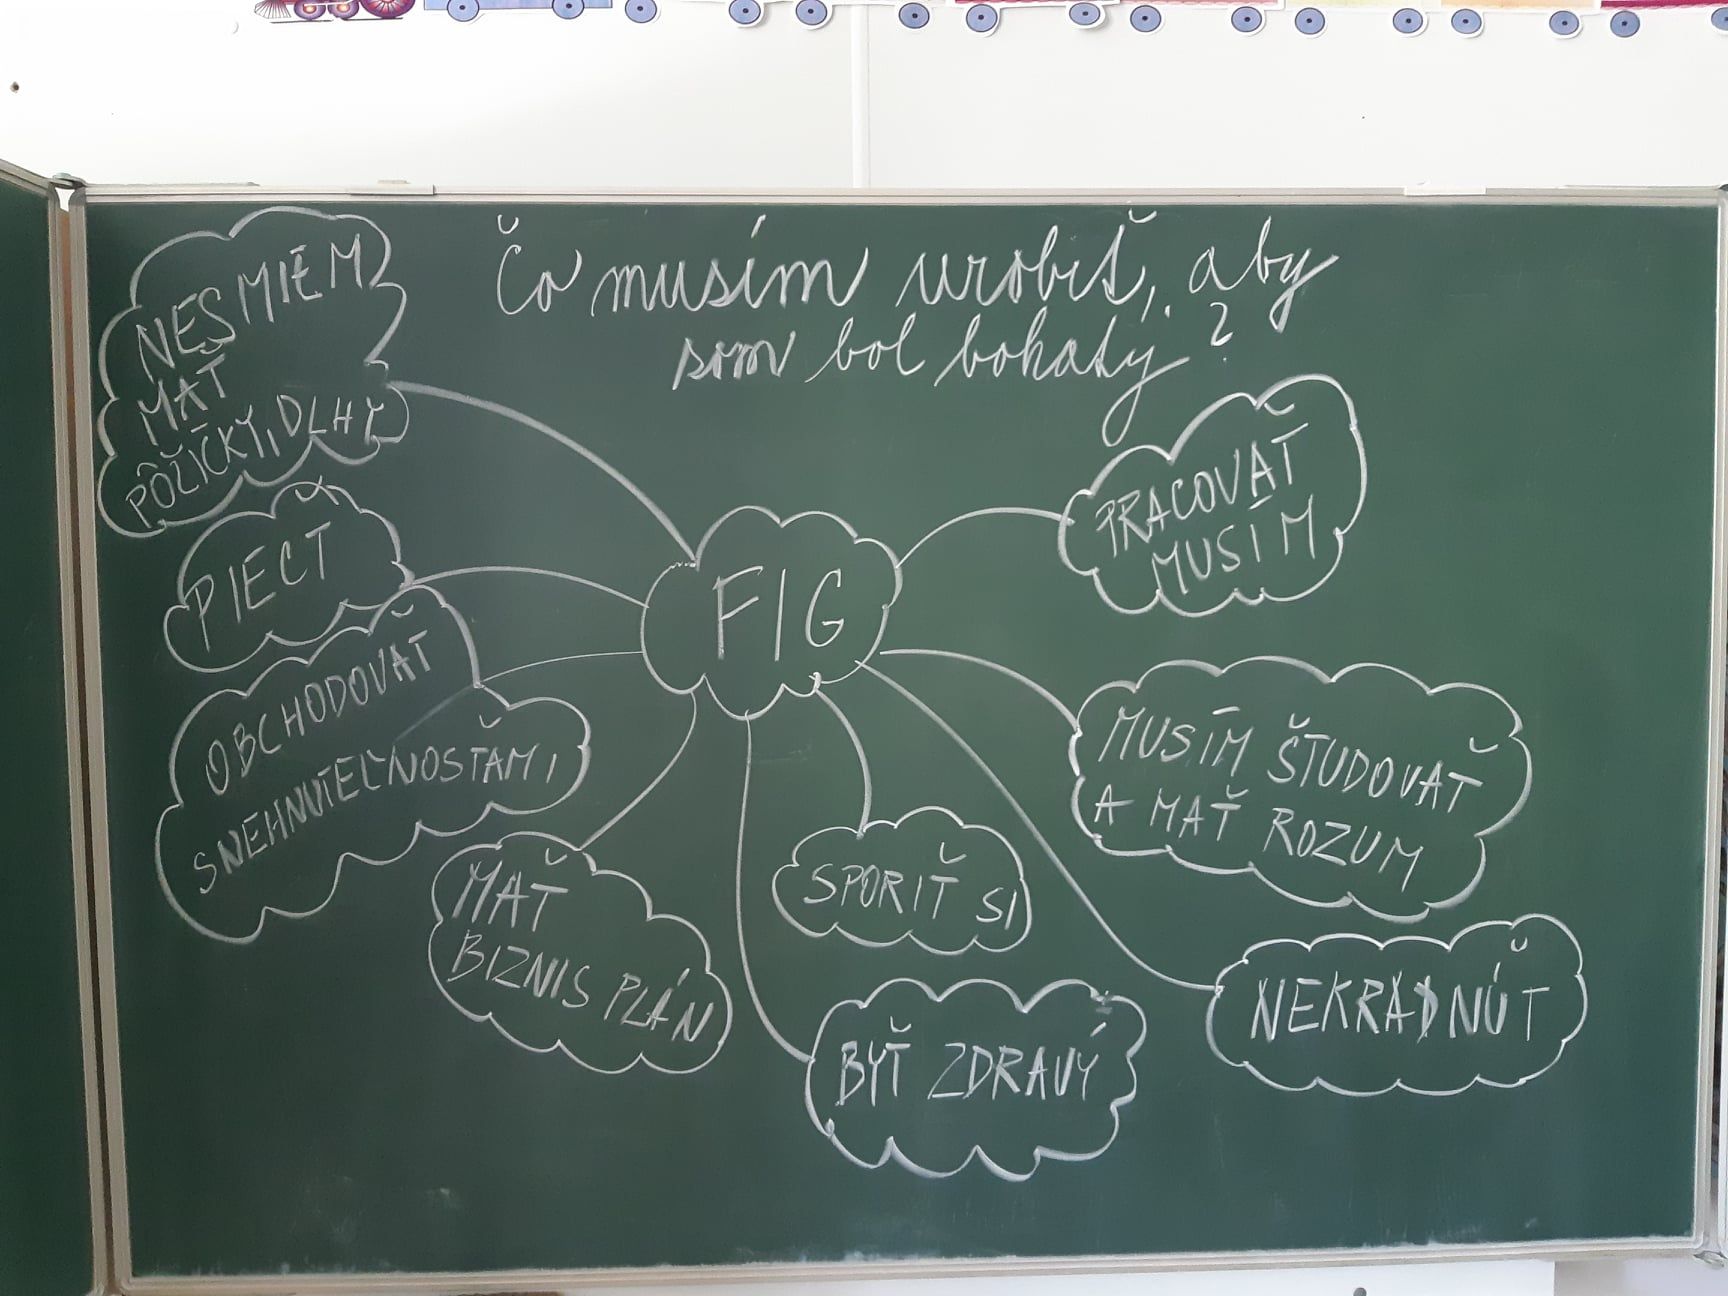 Čo musím urobiť, aby
som bol bohatý?
NESMIEM
MAŤ
PÔŽIČKY, DLHY
PIECŤ
OBCHODOVAŤ
SNEHNUTEĽNOSŤAMI
MAŤ
BIZNIS PLÁN
FIG
SPORIŤ SI
BYŤ ZDRAVÝ
PRACOVAŤ
MUSÍM
MUSÍM ŠTUDOVAŤ
A MAŤ ROZUM
NEKRADNÚŤ